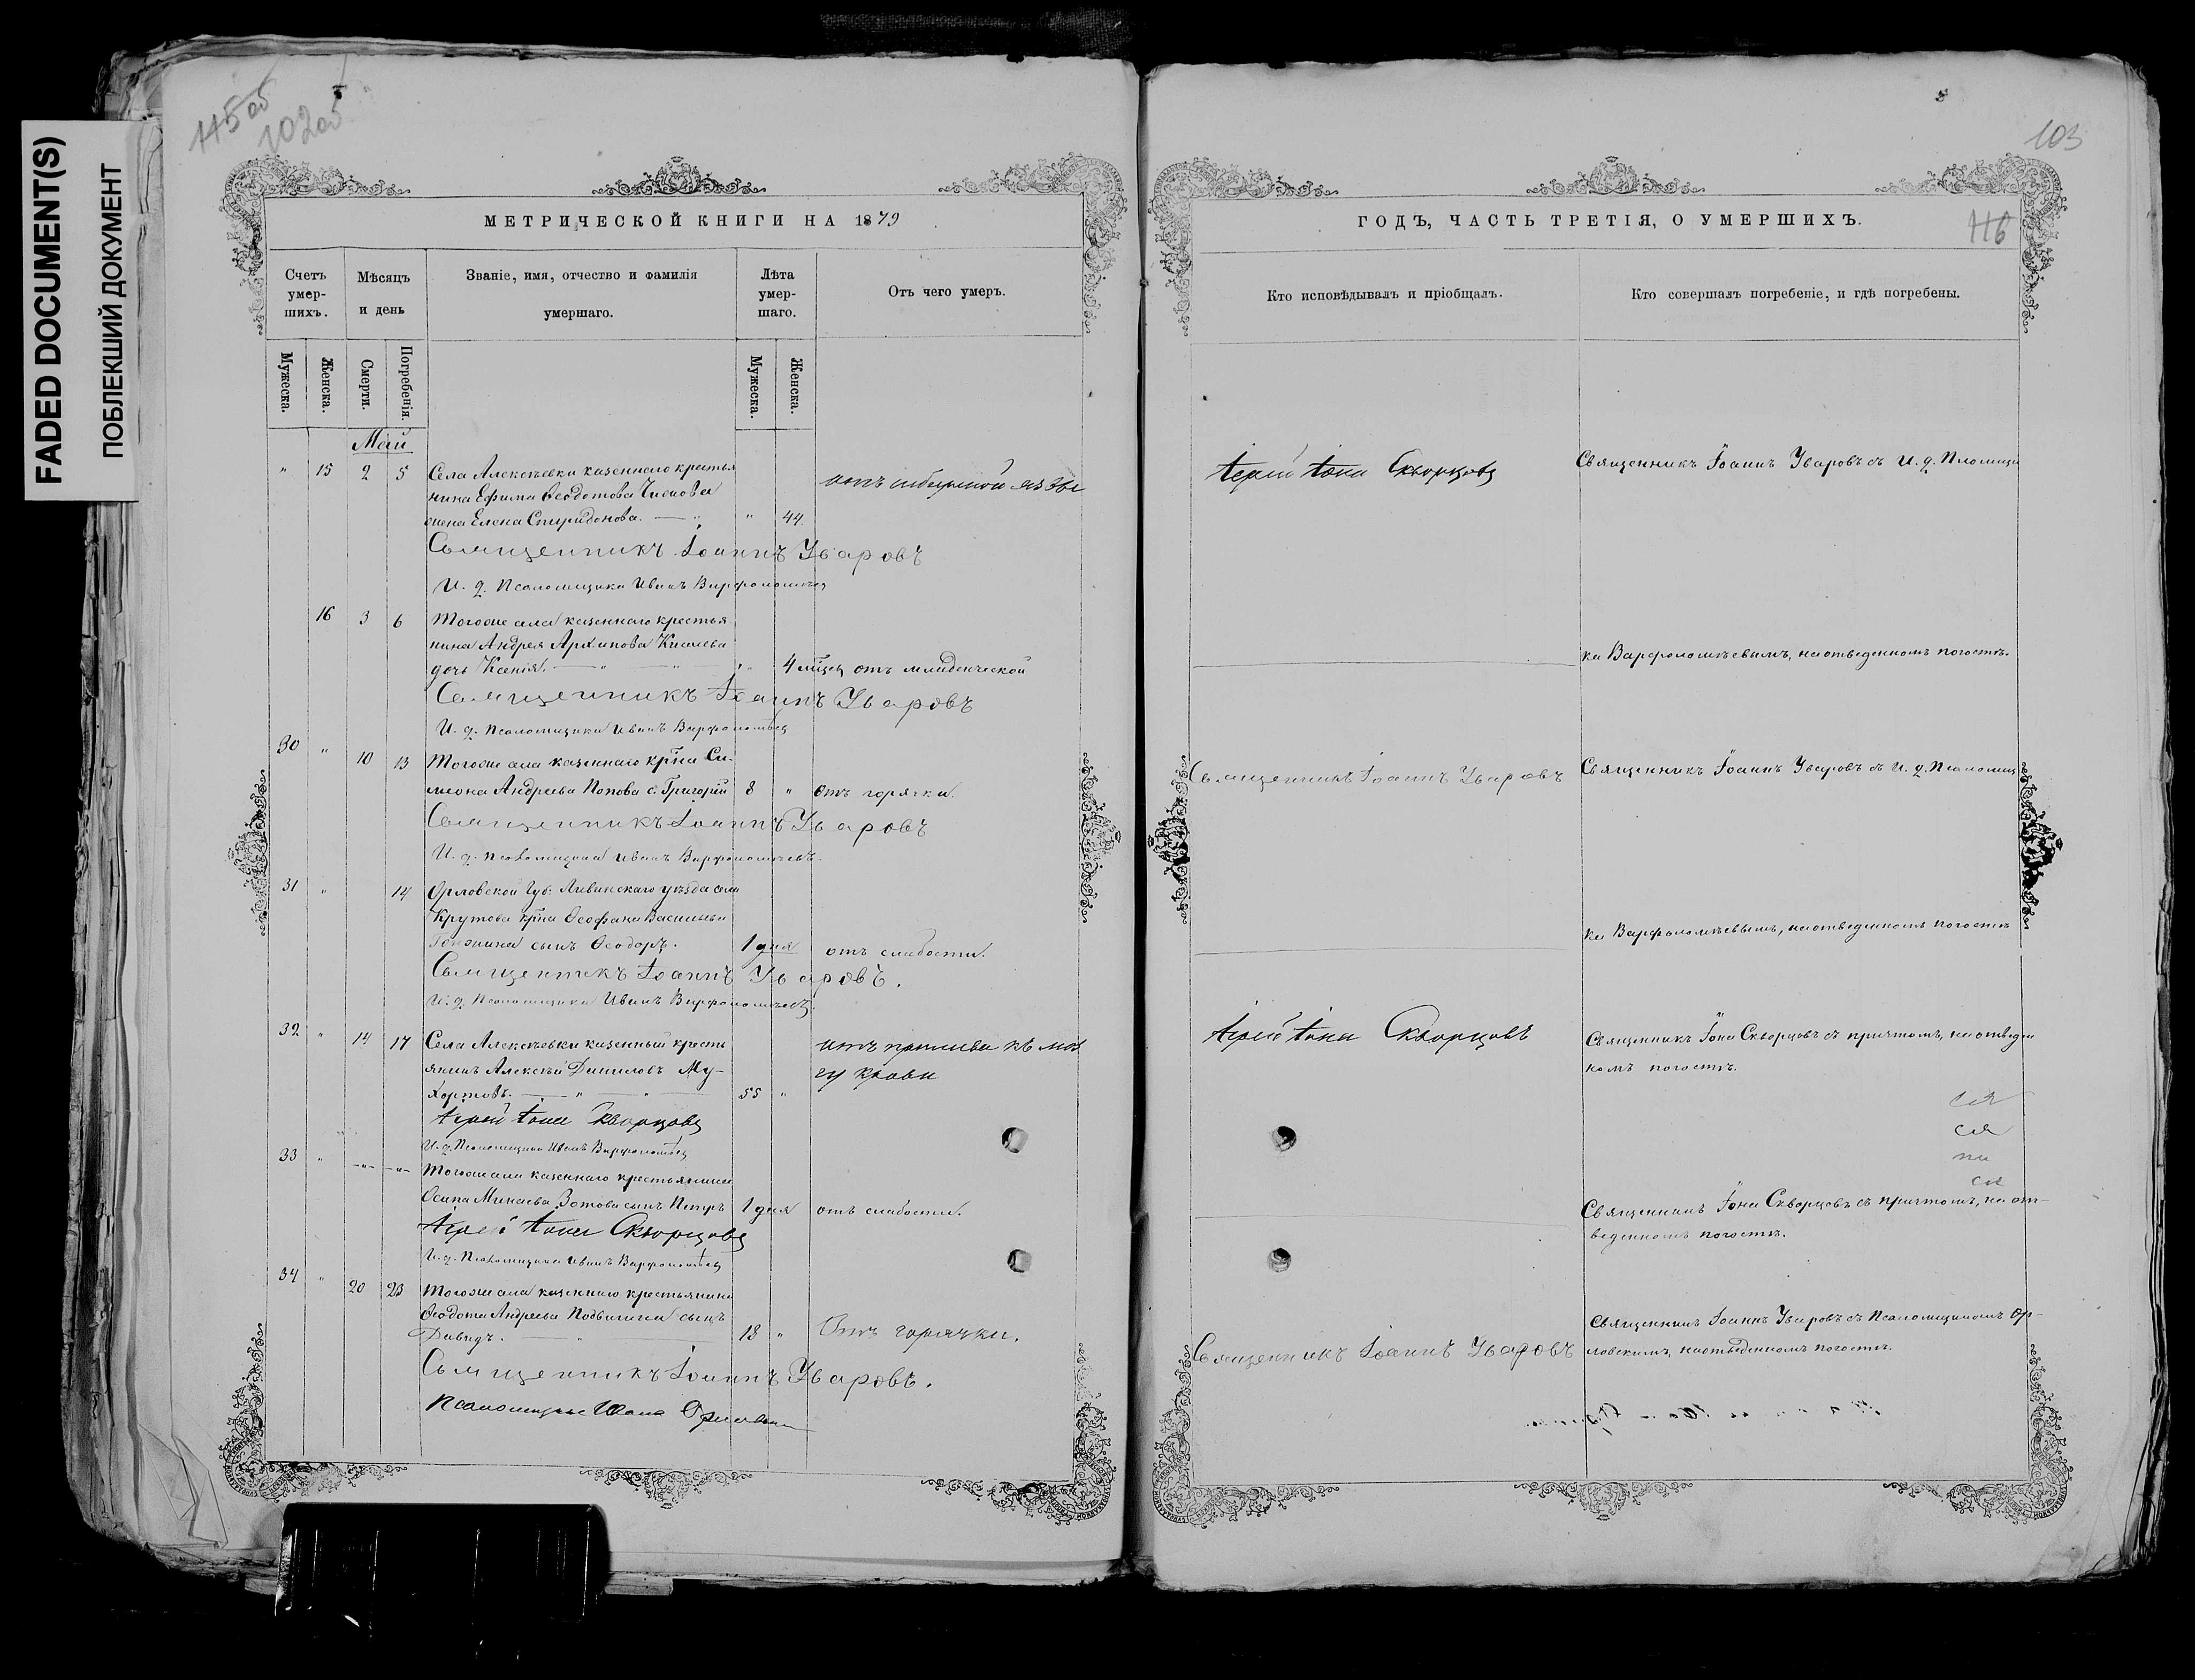 FADED DOCUMENT(S)
ПОБЛЕКШИЙ ДОКУМЕНТ
115 об
102 об
МЕТРИЧЕСКОЙ КНИГИ НА 1879
Счетъ умер-шихъ.
Мѣсяцъ и день
Званіе, имя, отчество и фамилія умершаго.
Лѣта умер-шаго.
Отъ чего умеръ.
Мужеска.
Женска.
Смерти.
Погребенія.
Мужеска.
Женска.
Май
" 15 2 5 Села Алексѣевки казеннаго крестья
нина Ефима Ѳеодотова
жена Елена Спиридонова. " 44. отъ сибирской язвы
Священникъ Іоаннъ Уваровъ
И. д. Псаломщика Иванъ Варфоломѣевъ
16 3 6 Тогоже села казеннаго крестья
нина Андрея Архипова Киселева
дочь Ксенія. " 4 мѣсц отъ младенческой
Священникъ Іоаннъ Уваровъ
И. д. Псаломщика Иванъ Варфоломѣевъ
30 " 10 13 Тогоже села казеннаго кр҃на Си-
меона Андреева Попова с. Григорій 8 " отъ горячки
Священникъ Іоаннъ Уваровъ
И. д. Псаломщика Иванъ Варфоломѣевъ.
31 " 14 Орловской Губ. Ливинскаго уѣзда села
Крутова кр҃на Ѳеофана Васильева
сынъ Ѳеодоръ. 1 дня отъ слабости.
Священникъ Іоаннъ Уваровъ.
И. д. Псаломщика Иванъ Варфоломѣевъ.
32 " 14 17 Села Алексѣевки казенный кресть
янинъ Алексѣй Даниловъ Му-
хортовъ. 55 " отъ прилива къ моз
гу крови
Іерей Іона Скворцовъ
И. д. Псаломщика Иванъ Варфоломѣевъ
33 " -"- -"- Тогоже села казеннаго крестьянина
Осипа Минаева Зотова сынъ Петръ 1 дня отъ слабости.
Іерей Іона Скворцовъ
И. д. Псаломщика Иванъ Варфоломѣевъ
34 " 20 23 Тогоже села казеннаго крестьянина
Ѳеодота Андреева Подвигина сынъ
Давидъ. 18 " Отъ горячки.
Священникъ Іоаннъ Уваровъ.
Псаломщикъ Иванъ Орловскій
103
116
ГОДЪ, ЧАСТЬ ТРЕТІЯ, О УМЕРШИХЪ.
Кто исповѣдывалъ и пріобщалъ.
Кто совершалъ погребеніе, и гдѣ погребены.
Іерей Іона Скворцовъ
Священникъ Іоаннъ Уваровъ съ И. д. Псаломщи
ка Варфоломѣевымъ, на отведенномъ погостѣ.
Священникъ Іоаннъ Уваровъ
Священникъ Іоаннъ Уваровъ съ И. д. Псаломщ
ка Варфоломѣевымъ, на отведенномъ погостѣ
Іерей Іона Скворцовъ
Священникъ Іона Скворцовъ съ причтомъ, на отведен
номъ погостѣ.
Священникъ Іона Скворцовъ съ причтомъ, на от-
веденномъ погостѣ.
Священникъ Іоаннъ Уваровъ
Священникъ Іоаннъ Уваровъ съ Псаломщикомъ Ор-
ловскимъ, на отведенномъ погостѣ.